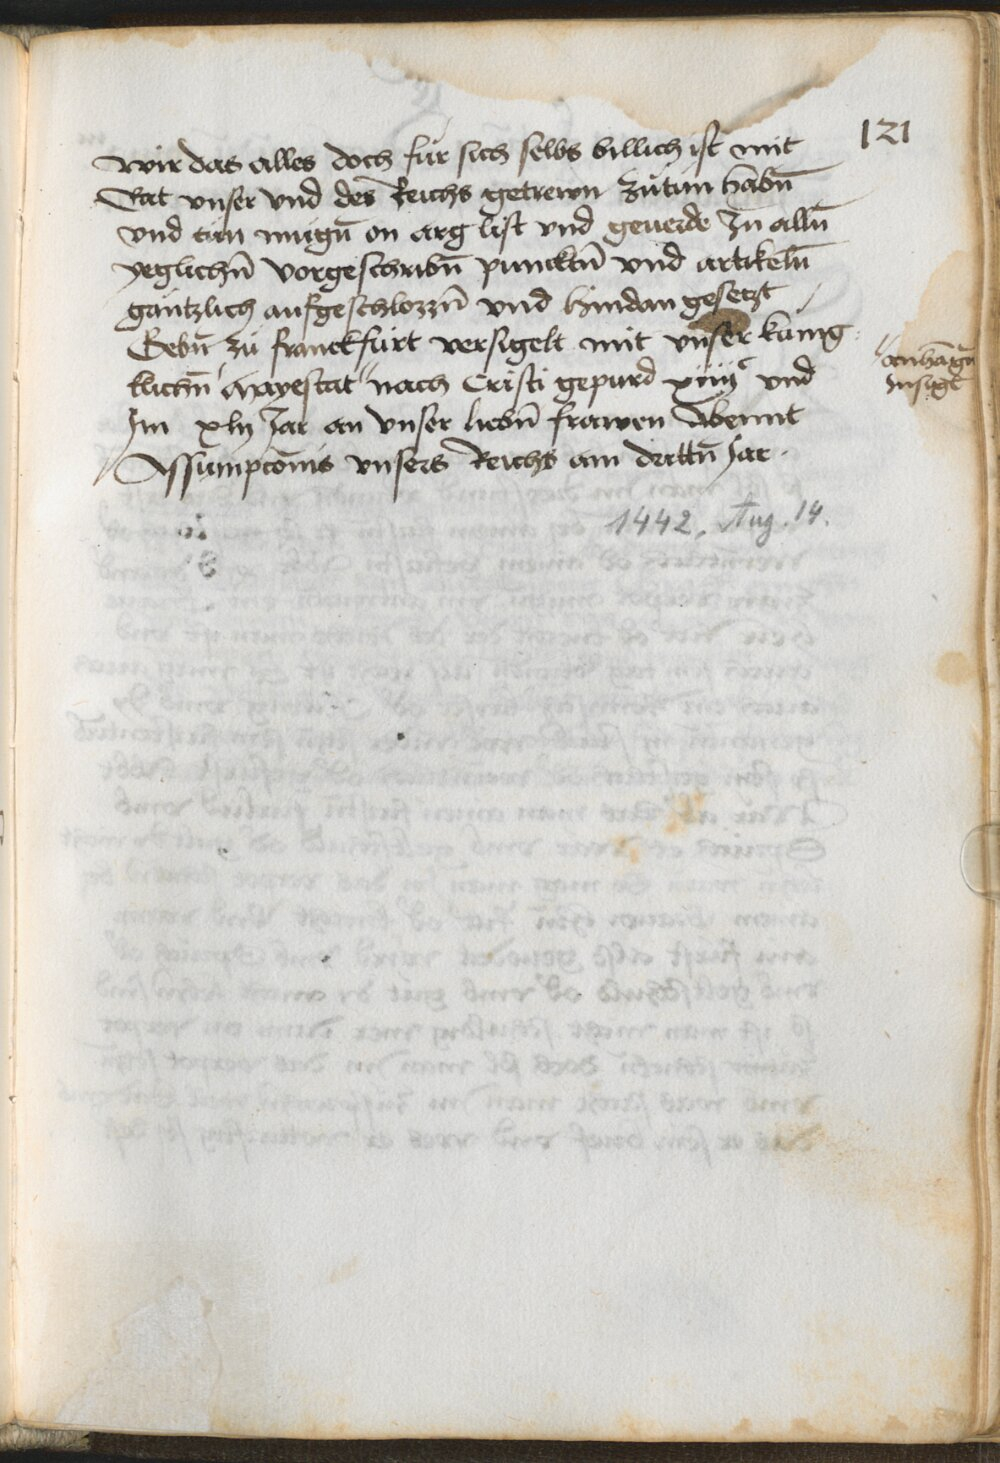 121
wir das alles doch fur sich selbs billich ist mit
Rat vnser vnd des Reichs getrewn zu tun habn̄
vnd tun mugn̄ on arg list vnd geuerde In alln̄
yeglichn̄ vorgeschribn̄ puncktn̄ vnd artikeln̄
gantzlich aufgeschlozzn̄ vnd hindan gesetzt /
Gebn̄ zu franckfurt versigelt mit vnser kunig
lichn̄ Mayestat " nach Cristi gepurd xiiijᶜ vnd
Im xlij Jar an vnser liebn̄ frawen Abennt
Assumpcōnis vnsers Reichs am drittn̄ Jar .
" anhāgn̄
Insigl
1442. Aug. 14.